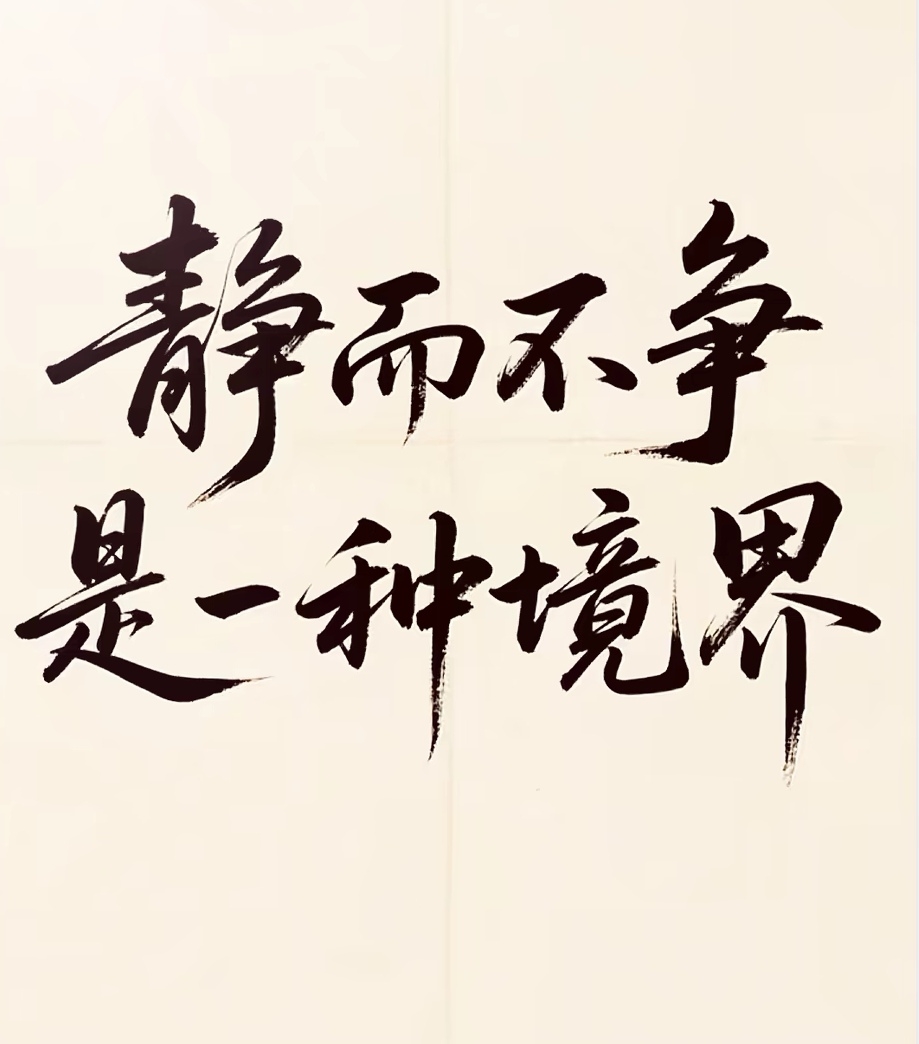 静而不争
是一种境界